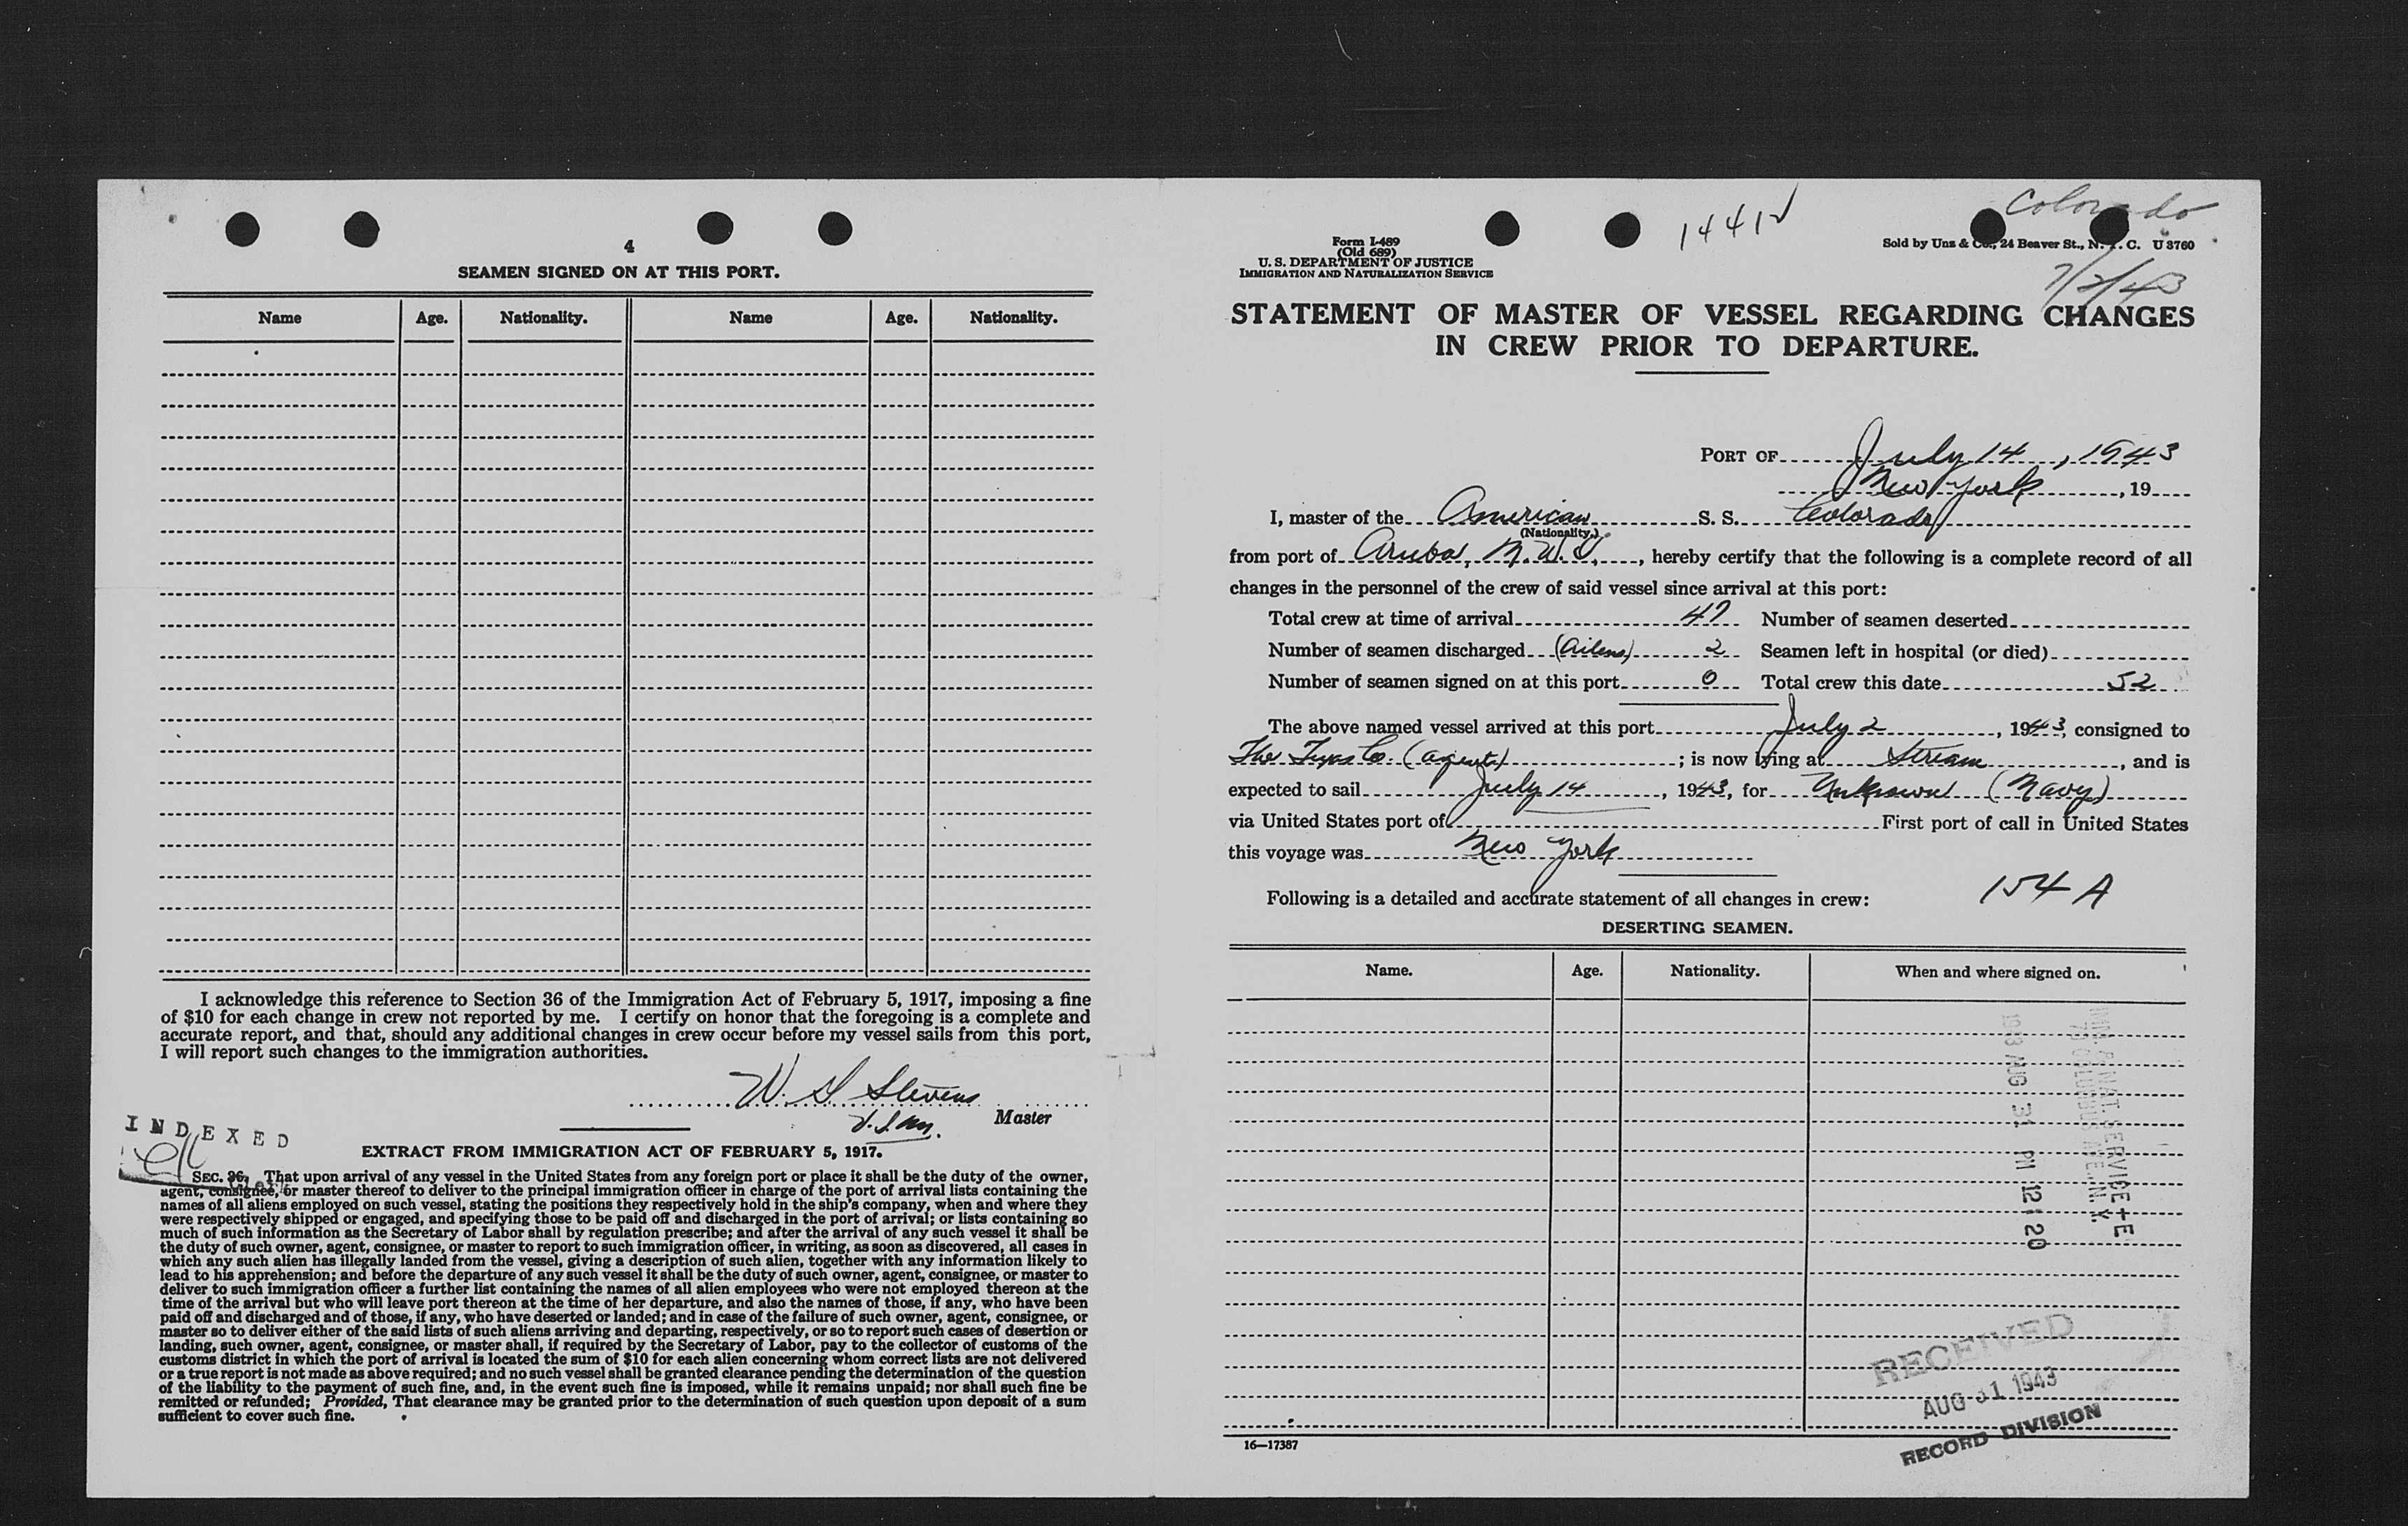 4
SEAMEN SIGNED ON AT THIS PORT.
Name Age. Nationality. Name Age. Nationality.
I acknowledge this reference to Section 36 of the Immigration Act of February 5, 1917, imposing a fine
of $10 for each change in crew not reported by me. I certify on honor that the foregoing is a complete and
accurate report, and that, should any additional changes in crew occur before my vessel sails from this port,
I will report such changes to the immigration authorities.
W. S. Stevens
Master
INDEXED
EXTRACT FROM IMMIGRATION ACT OF FEBRUARY 5, 1917.
SEC. 36. That upon arrival of any vessel in the United States from any foreign port or place it shall be the duty of the owner,
agent, consignee, or master thereof to deliver to the principal immigration officer in charge of the port of arrival lists containing the
names of all aliens employed on such vessel, stating the positions they respectively hold in the ship's company, when and where they
were respectively shipped or engaged, and specifying those to be paid off and discharged in the port of arrival; or lists containing so
much of such information as the Secretary of Labor shall by regulation prescribe; and after the arrival of any such vessel it shall be
the duty of such owner, agent, consignee, or master to report to such immigration officer, in writing, as soon as discovered, all cases in
which any such alien has illegally landed from the vessel, giving a description of such alien, together with any information likely to
lead to his apprehension; and before the departure of any such vessel it shall be the duty of such owner, agent, consignee, or master to
deliver to such immigration officer a further list containing the names of all alien employees who were not employed thereon at the
time of the arrival but who will leave port thereon at the time of her departure, and also the names of those, if any, who have been
paid off and discharged and of those, if any, who have deserted or landed; and in case of the failure of such owner, agent, consignee, or
master so to deliver either of the said lists of such aliens arriving and departing, respectively, or so to report such cases of desertion or
landing, such owner, agent, consignee, or master shall, if required by the Secretary of Labor, pay to the collector of customs of the
customs district in which the port of arrival is located the sum of $10 for each alien concerning whom correct lists are not delivered
or a true report is not made as above required; and no such vessel shall be granted clearance pending the determination of the question
of the liability to the payment of such fine, and, in the event such fine is imposed, while it remains unpaid; nor shall such fine be
remitted or refunded; Provided, That clearance may be granted prior to the determination of such question upon deposit of a sum
sufficient to cover such fine.
Colorado
Form I-489
(Old 689)
U. S. DEPARTMENT OF JUSTICE
IMMIGRATION AND NATURALIZATION SERVICE
1441
Sold by Unz & Co., 24 Beaver St., N. Y. C. U 3760
7/2/43
STATEMENT OF MASTER OF VESSEL REGARDING CHANGES
IN CREW PRIOR TO DEPARTURE.
PORT OF July 14, 1943
New York, 19
I, master of the American S. S. Colorado
(Nationality.)
from port of Aruba, N.W.I., hereby certify that the following is a complete record of all
changes in the personnel of the crew of said vessel since arrival at this port:
Total crew at time of arrival 47 Number of seamen deserted
Number of seamen discharged (Ailens) 2 Seamen left in hospital (or died)
Number of seamen signed on at this port 0 Total crew this date 52
The above named vessel arrived at this port July 2, 1943, consigned to
The Texas Co. (agents); is now lying at Stream, and is
expected to sail July 14, 1943, for Unknown (Navy)
via United States port of First port of call in United States
this voyage was New York
Following is a detailed and accurate statement of all changes in crew:
154 A
DESERTING SEAMEN.
Name. Age. Nationality. When and where signed on.
1943 AUG 31 PM 12:20
RECEIVED
AUG 31 1943
RECORD DIVISION
16—17387